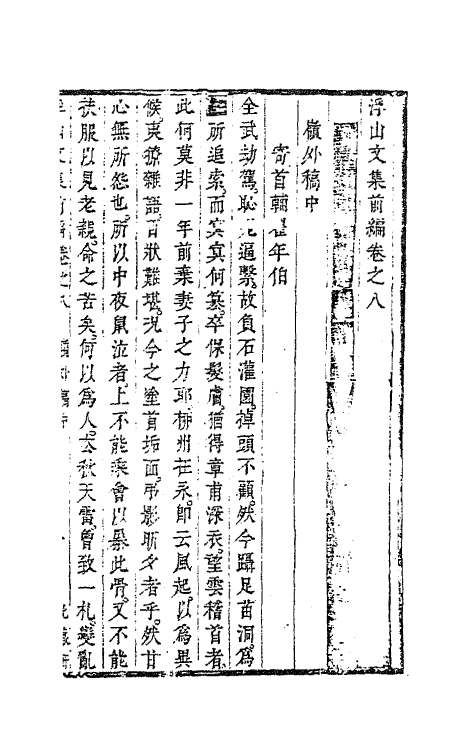 浮山文集前編卷之八
嶺外稿中
寄首輔瞿年伯
全武劫駕，恥 逼繫，故負石灌園，掉頭不顧，然今躡足苗洞，爲
所追索，而冥冥何篡，卒保髮膚，猶得章甫深衣，望雲稽首者，
此何莫非一年前棄妻子之力耶，柳州在永，即云風起，以爲異
候，夷獠雜語，百狀難堪，況今之塗首垢面，弔影昕夕者乎，然甘
心無所怨也，所以中夜鼠泣者，上不能乘會以暴此骨，又不能
扶服以見老親，命之苦矣，何以爲人，去秋天雷，曾致一札，變亂
浮山文集前編 卷之八 嶺外稿中